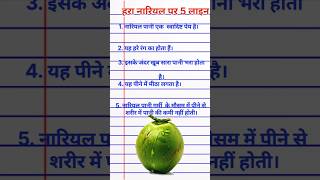 3. इसके
4. यह पीने
5. नारियल
शरीर में
हरा नारियल पर 5 लाइन
1. नारियल पानी एक स्वादिष्ट पेय है।
2. यह हरे रंग का होता हैं।
3. इसके अंदर खूब सारा पानी भरा होता
है।
4. यह पीने में मीठा लगता है।
5. नारियल पानी गर्मी के मौसम में पीने से
शरीर में पानी की कमी नहीं होती।
भरा होता
है।
में पीने से
नहीं होती।